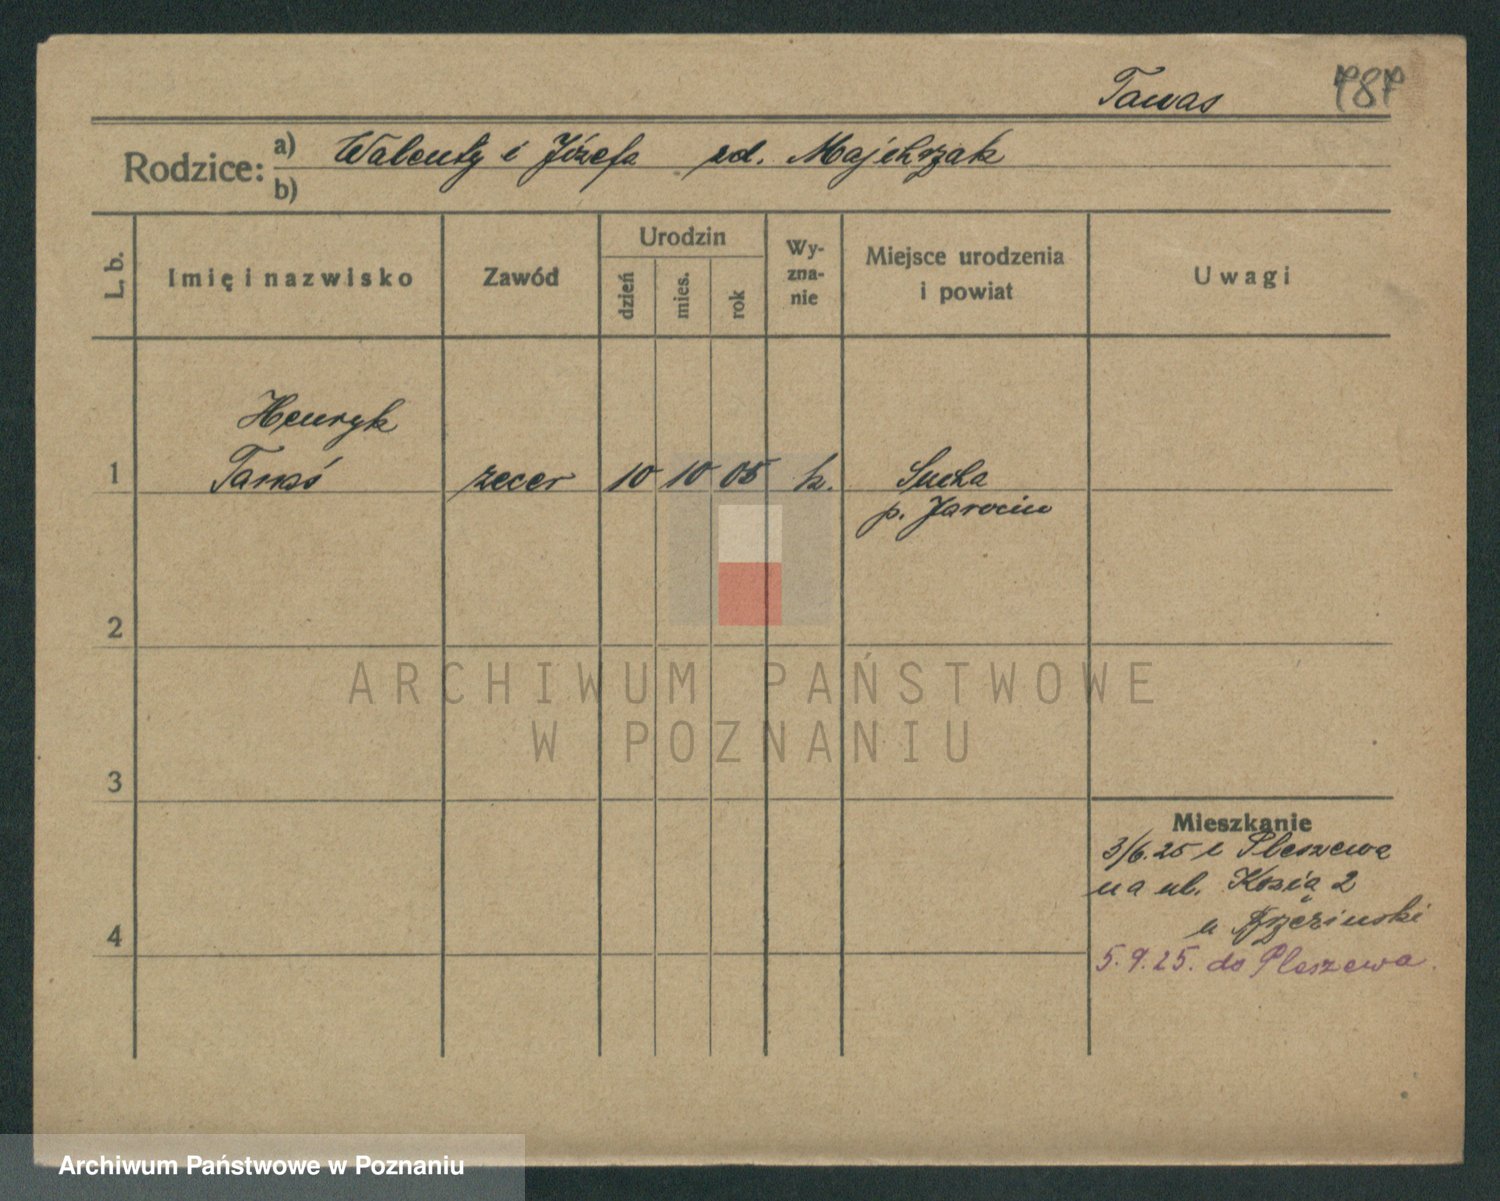 Tawas 787
Rodzice: a) Walenty i Józefa zd. Majchrzak
b)
L. b. Imię i nazwisko Zawód Urodzin dzień mies. rok Wy-zna-nie Miejsce urodzenia i powiat Uwagi
Henryk
1 Tawaś zecer 10 10 05 k. Sucha
p. Jarocin
2
ARCHIWUM PAŃSTWOWE
W POZNANIU
3
Mieszkanie
3/6.25 z Pleszewa
na ul. Kozią 2
4 u
5.9.25. do Pleszewa.
Archiwum Państwowe w Poznaniu